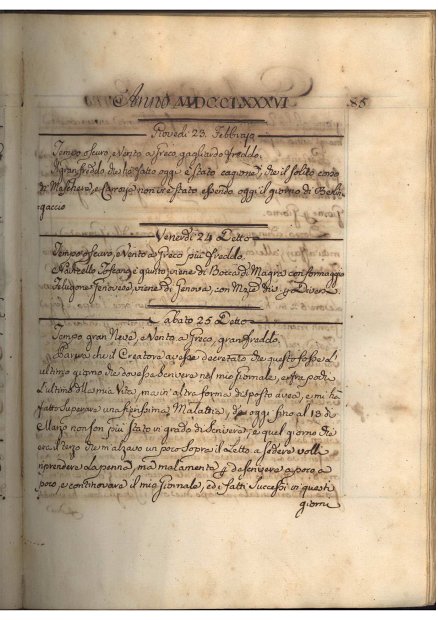 Anno MDCCLXXXVI 85
Giovedi 23. Febbrajo
Tempo oscuro, e Vento a Greco gagliardo freddo.
Il gran freddo che hà fatto oggi è stato cagione, che il solito corso
di Maschere, e Carrozze non vi è stato essendo oggi il giorno di Berlin-
gaccio
Venerdi 24 Detto
Tempo oscuro, e Vento a Greco più freddo.
Navicello Toscano è giunto viene di Bocca di Magra con formaggio
Feluga Genovese viene di Genova, con Merc. div. p. Diversi
Sabato 25 Detto
Tempo gran Neve, e Vento a Greco, gran freddo.
Pareva che il Creatore avesse decretato che questo fosse l'
ultimo giorno che dovesse scrivere nel mio Giornale, e fra pochi
l'ultimo della mia Vita, ma in altra forma disposto avea, e mi hà
fatto superare una fierissima Malattia, che oggi fino al 13 di
Marzo non son più stato in grado di scrivere, e quel giorno che
era il terzo che m'alzavo un poco sopra il Letto a sedere volli
riprendere la penna, ma malamente p. descrivere a poco, a
poco, e continovare il mio Giornale, ed i fatti successi in questi
giorni